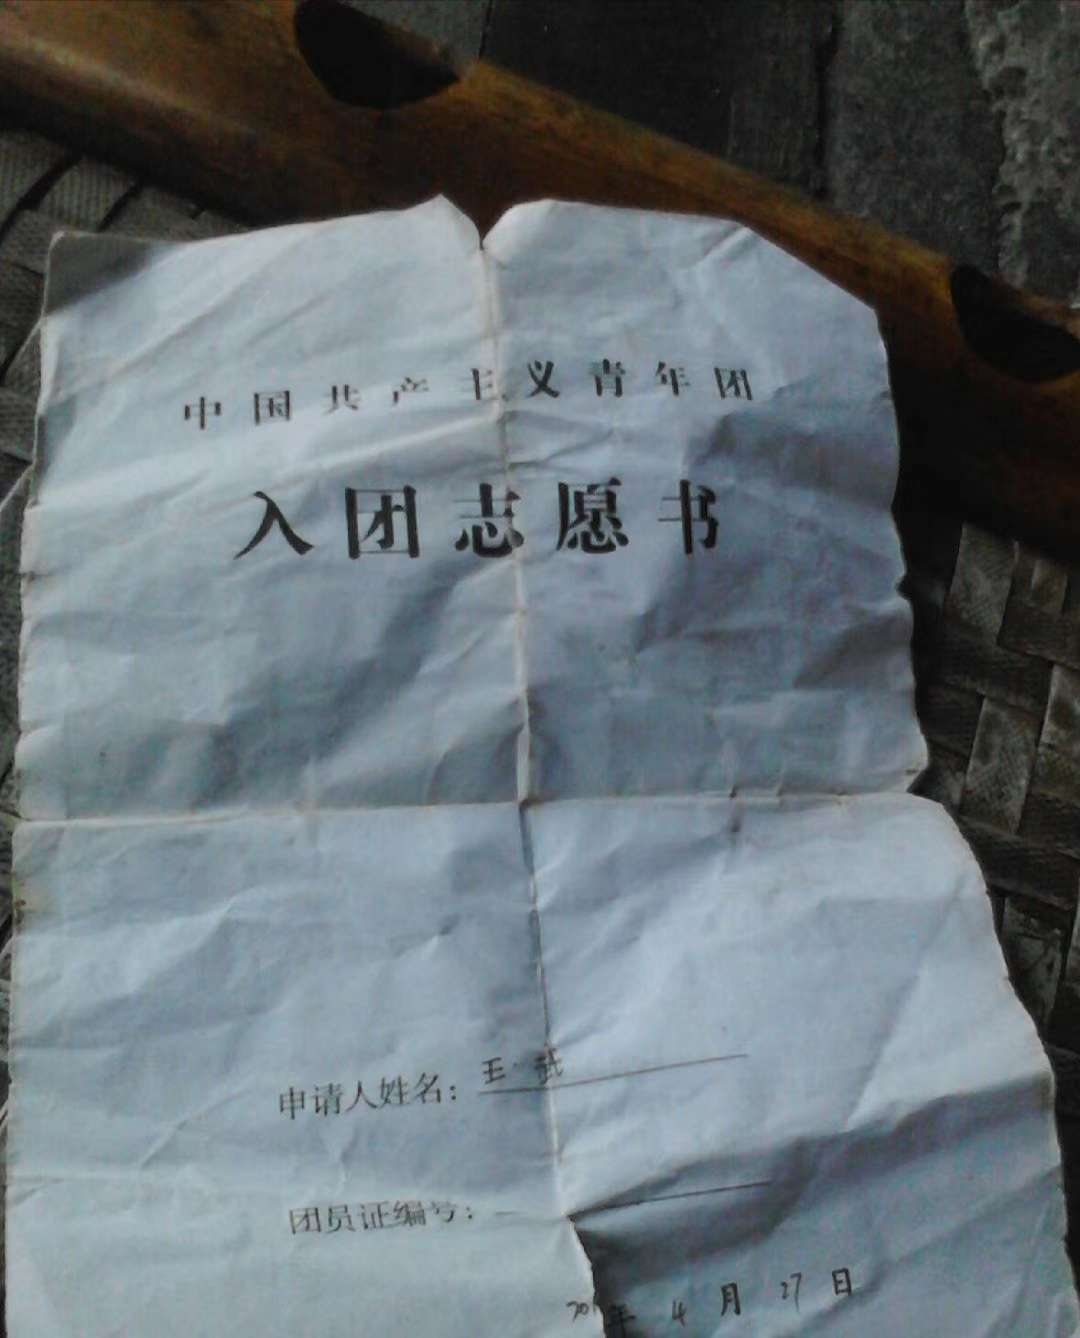 中国共产主义青年团
入团志愿书
申请人姓名：王武
团员证编号：
年 4 月 27 日